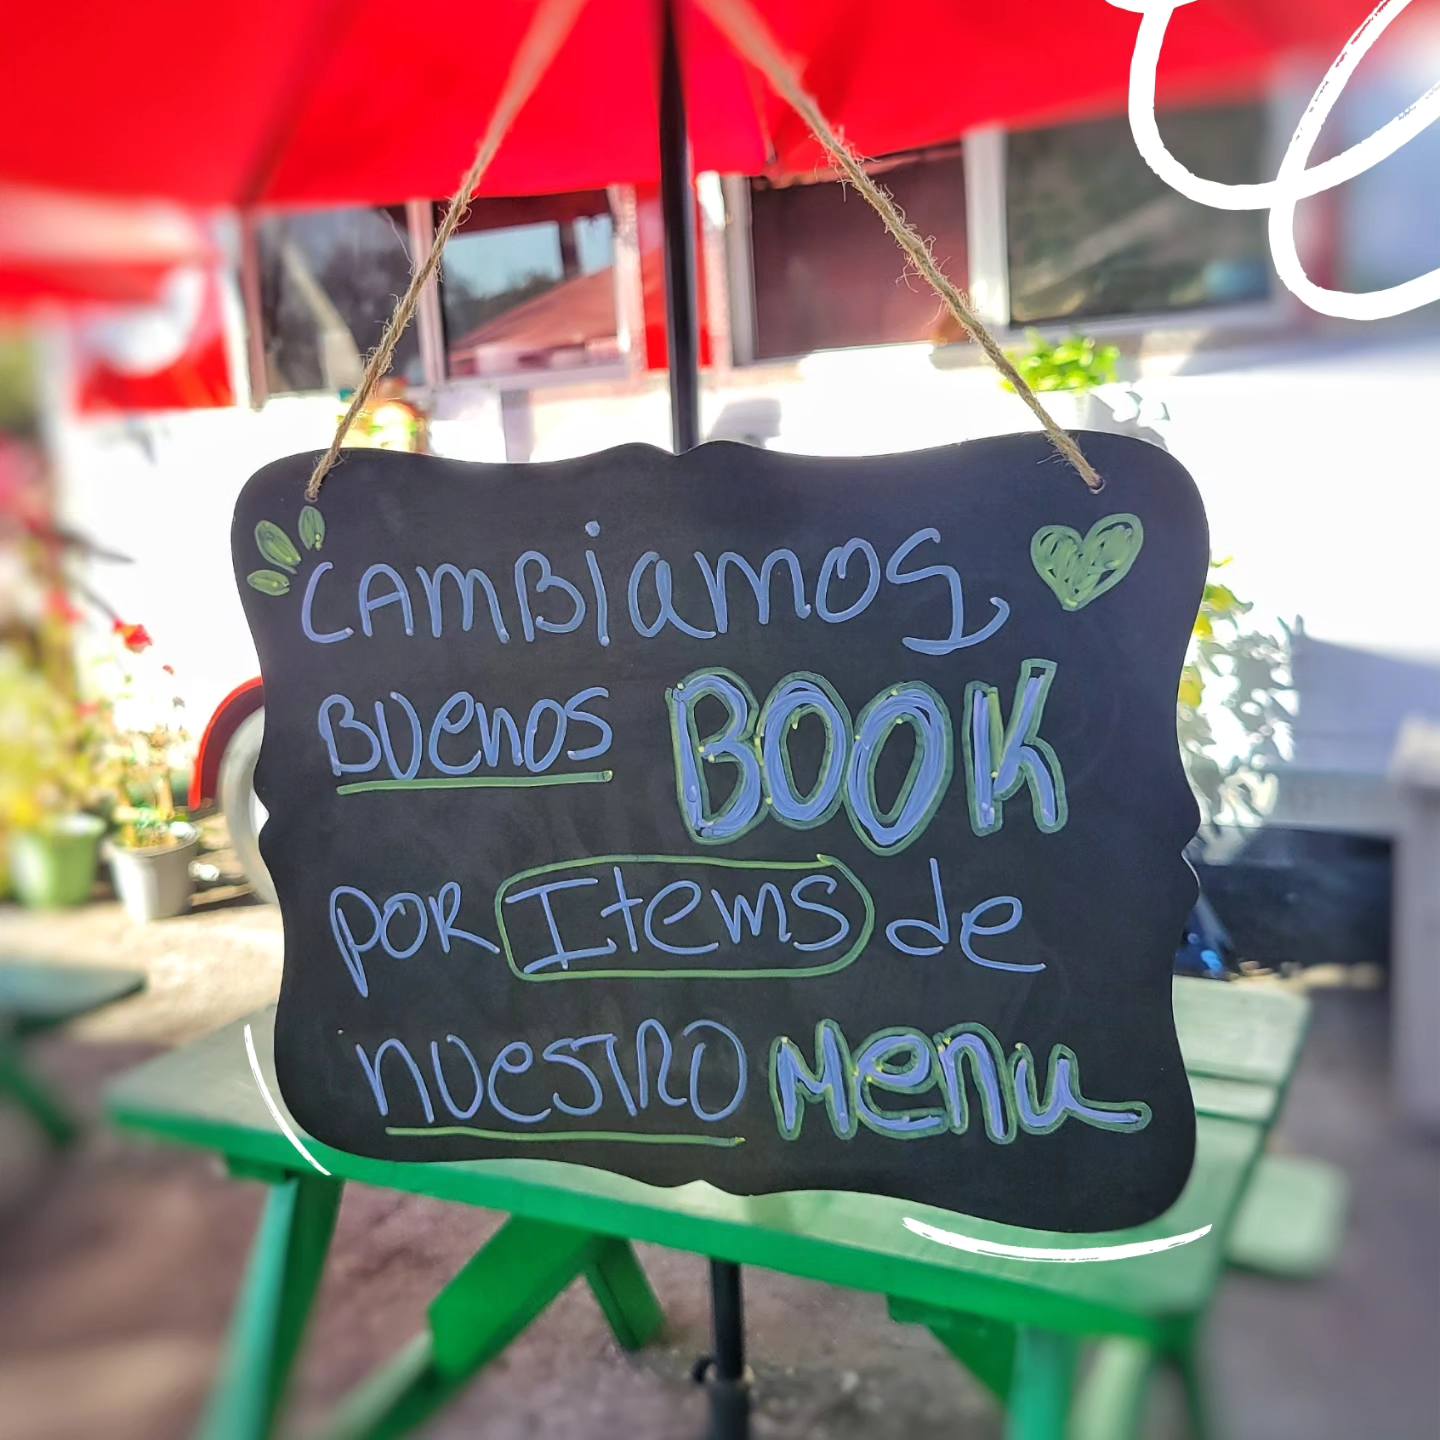 CAMBiamos
BUenos BOOK
POR Items de
nUeSTRO Menu